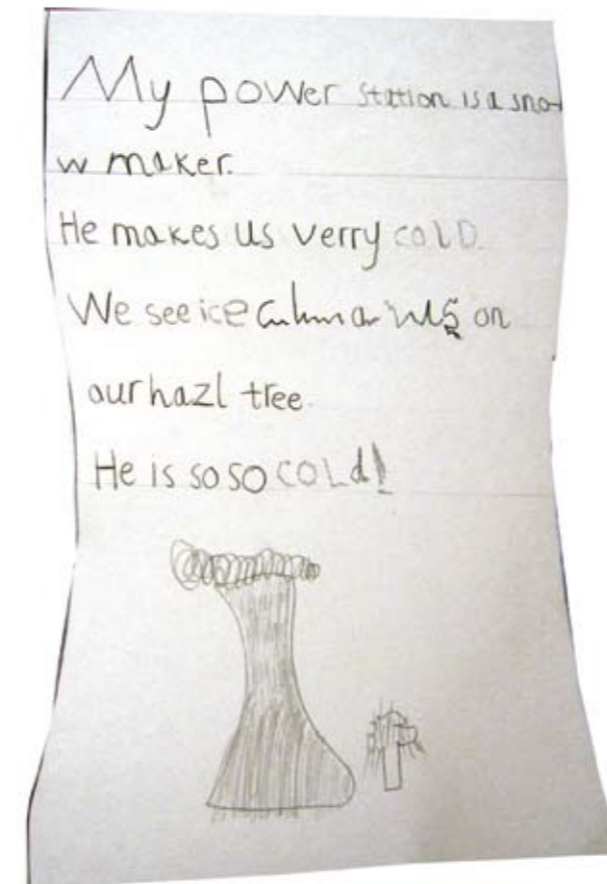 My power station is a sno
w maker.
He makes us verry coLD.
We see ice on
our hazl tree.
He is so so coLd!